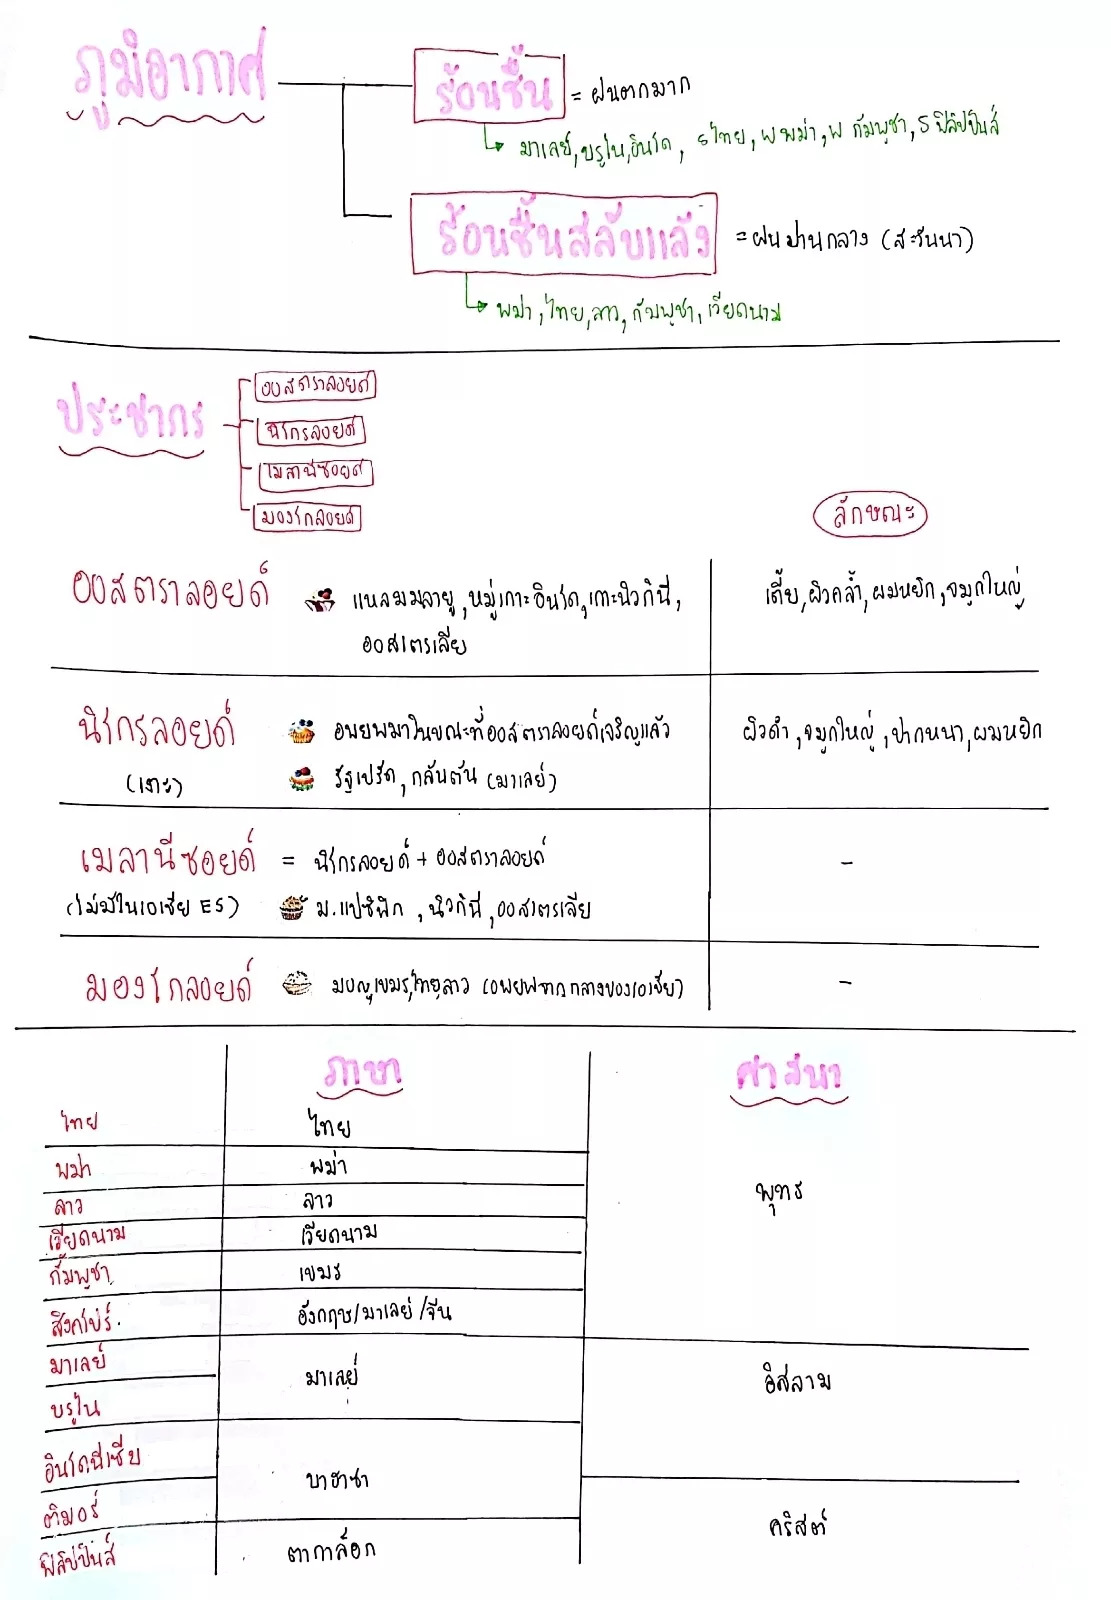 ภูมิอากาศ
ร้อนชื้น = ฝนตกมาก
มาเลย์, บรูไน, อินโด, Sไทย, Wพม่า, W กัมพูชา, S ฟิลิปปินส์
ร้อนชื้นสลับแล้ง = ฝนปานกลาง (สะวันนา)
พม่า, ไทย, ลาว, กัมพูชา, เวียดนาม
ประชากร
ออสตราลอยด์
นิโกรลอยด์
เมลานีซอยด์
มองโกลอยด์
ลักษณะ
ออสตราลอยด์ แหลมมลายู, หมู่เกาะอินโด, เกาะนิวกินี, เตี้ย, ผิวคล้ำ, ผมหยิก, จมูกใหญ่
ออสเตรเลีย
นิโกรลอยด์ อพยพมาในขณะที่ออสตราลอยด์เจริญแล้ว ผิวดำ, จมูกใหญ่, ปากหนา, ผมหยิก
(เงาะ) รัฐเปรัด, กลันตัน (มาเลย์)
เมลานีซอยด์ = นิโกรลอยด์ + ออสตราลอยด์ -
(ไม่มีในเอเชีย ES) ม.แปซิฟิก, นิวกินี, ออสเตรเลีย
มองโกลอยด์ มอญ, เขมร, ไทย, ลาว (อพยพจากกลางของเอเชีย) -
ภาษา ศาสนา
ไทย ไทย
พม่า พม่า
พุทธ
ลาว ลาว
เวียดนาม เวียดนาม
กัมพูชา เขมร
สิงคโปร์ อังกฤษ/มาเลย์/จีน
มาเลย์ มาเลย์ อิสลาม
บรูไน
อินโดนีเซีย บาฮาซา
ติมอร์ คริสต์
ฟิลิปปินส์ ตากาล็อก